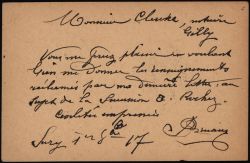 Monsieur Clercka, notaire
Gilly
Vous me ferez plaisir en voulant
bien me donner les renseignements
réclamés par ma dernière lettre, au
sujet de la Succession
Civilités empressées